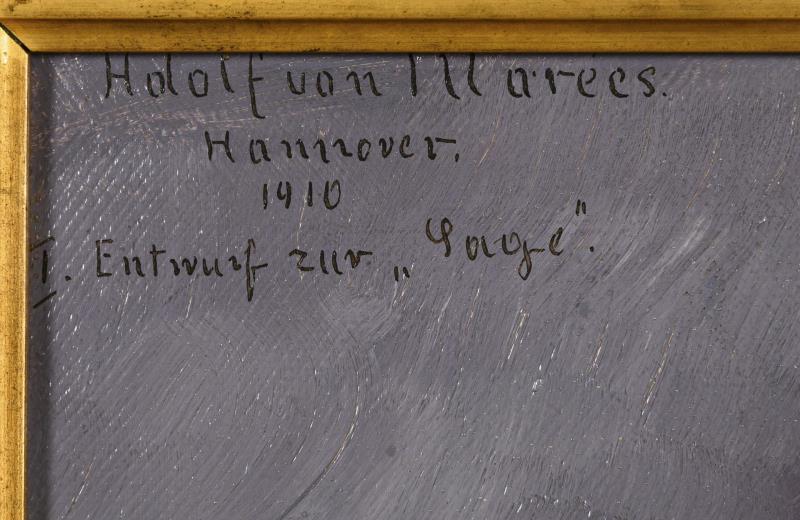 Adolf von Marées.
Hannover.
1910
I. Entwurf zur „Sage“.